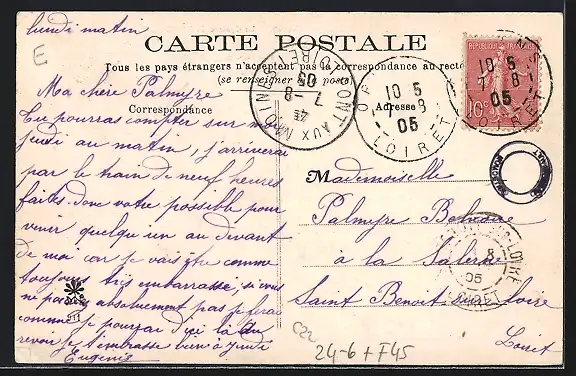 lundi matin
E
CARTE POSTALE
Tous les pays étrangers n'acceptent pas la correspondance au recto
(se renseigner à la poste)
RÉPUBLIQUE FRANÇAISE
10c
10 5
7 8
05
LOIRET
10 5
7-8
05
LOIRET
MONTAUX MOINES
7-8
05
LOIRE
Correspondance
Adresse
Ma chère Palmyre
Tu pourras compter sur moi
jeudi au matin, j'arriverai
par le train de neuf heures
faites donc votre possible pour
venir quelqu'un au devant
de moi car je vais être comme
toujours très embarrassée, si vous
ne pouvez absolument pas je ferai
comme je pourrai d'ici là au
revoir je t'embrasse bien à jeudi
Eugénie
Mademoiselle
Palmyre
à la
Saint Benoit sur Loire
Loiret
LOIRE
05
C22
24-6+F45